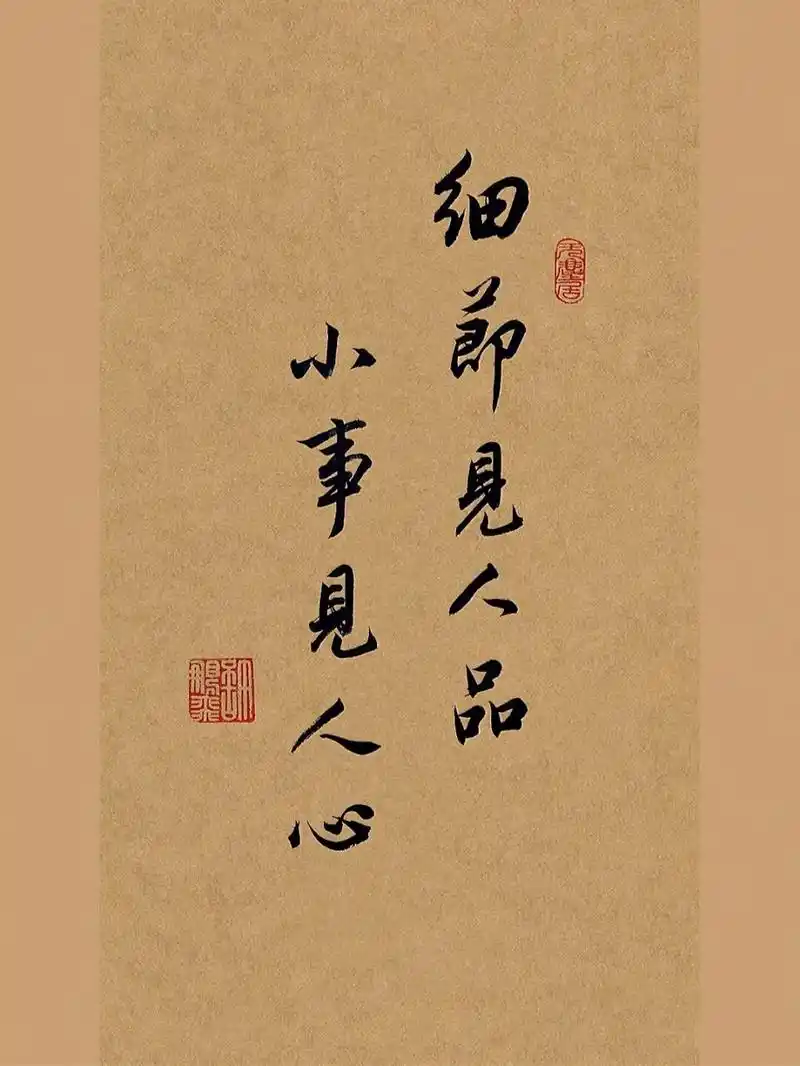 细節見人品
小事見人心